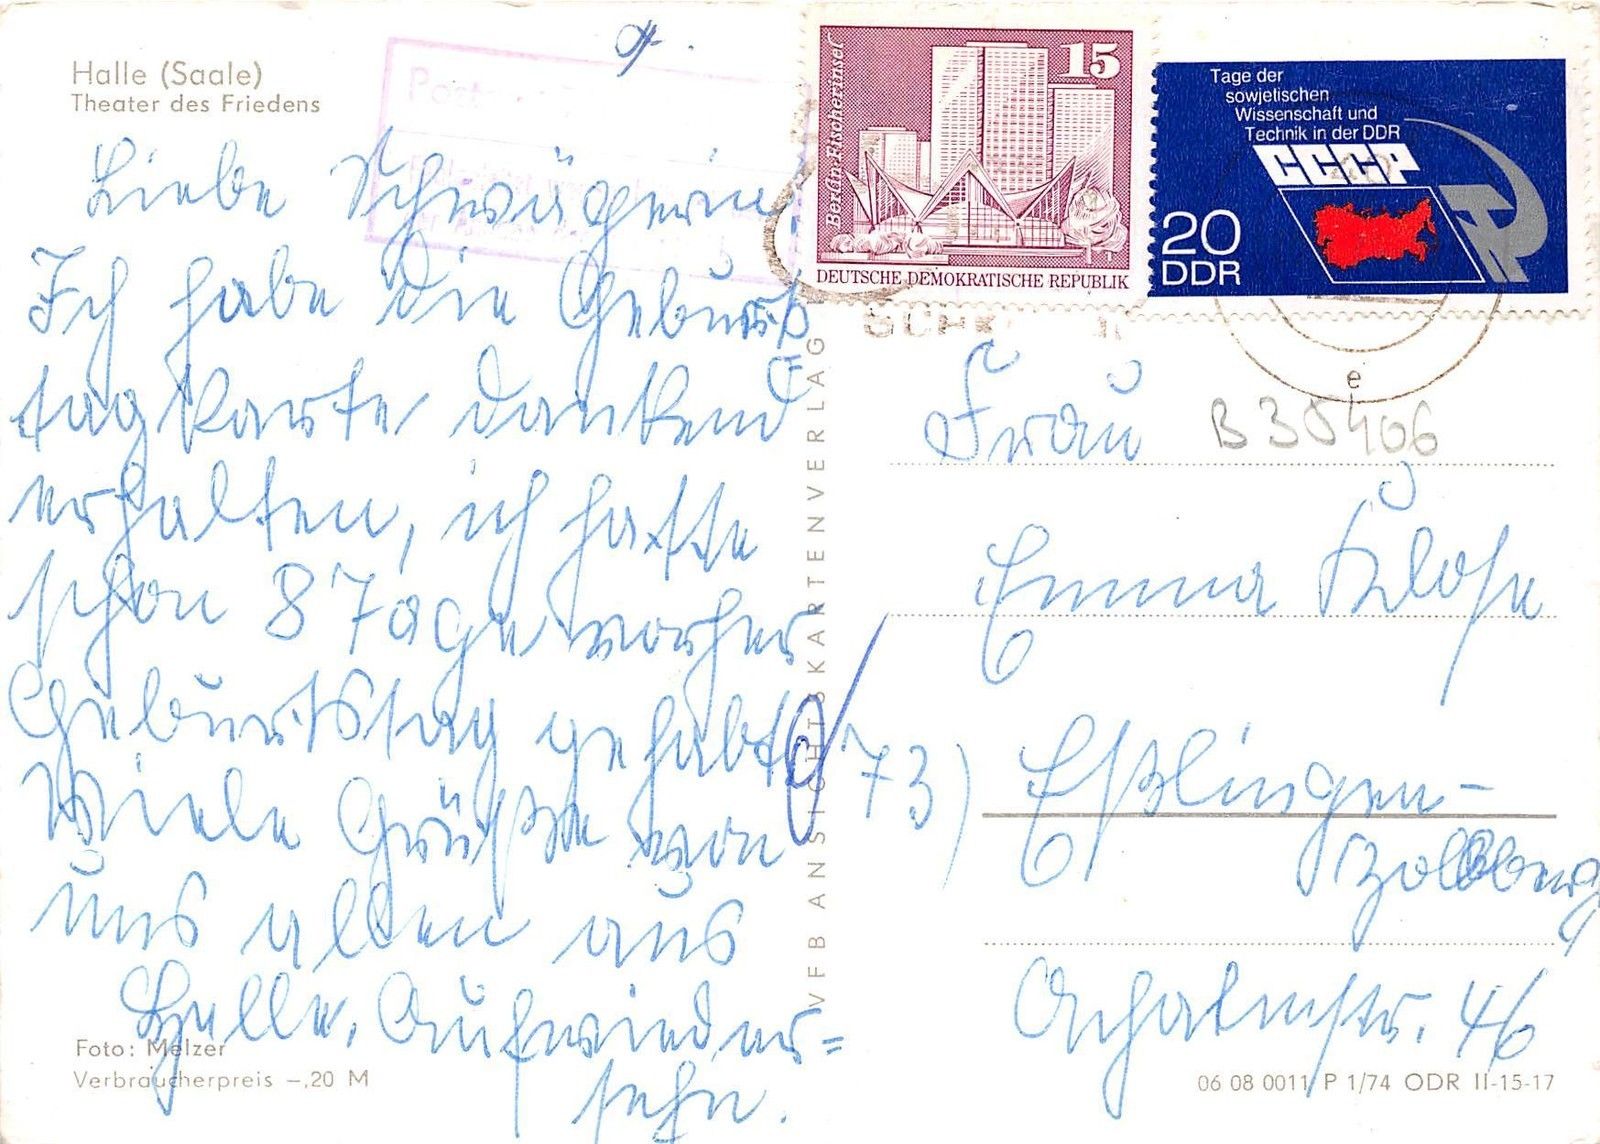 Halle (Saale)
Theater des Friedens
Liebe Schwägerin
Ich habe die Geburts
tagkarte dankend
erhalten, ich hatte
schon 8 Tage vorher
Geburtstag gehabt
Viele Grüße von
uns allen aus
Halle. Aufwieder=
sehn.
Foto: Melzer
Verbraucherpreis –,20 M
VEB ANSICHTSKARTENVERLAG
Berlin-Fischerinsel
15
DEUTSCHE DEMOKRATISCHE REPUBLIK
Tage der
sowjetischen
Wissenschaft und
Technik in der DDR
CCCP
20
DDR
e
B 35406
Frau
Emma Klose
73) Eßlingen-
Zollberg
Achalmstr. 46
06 08 0011 P 1/74 ODR II-15-17